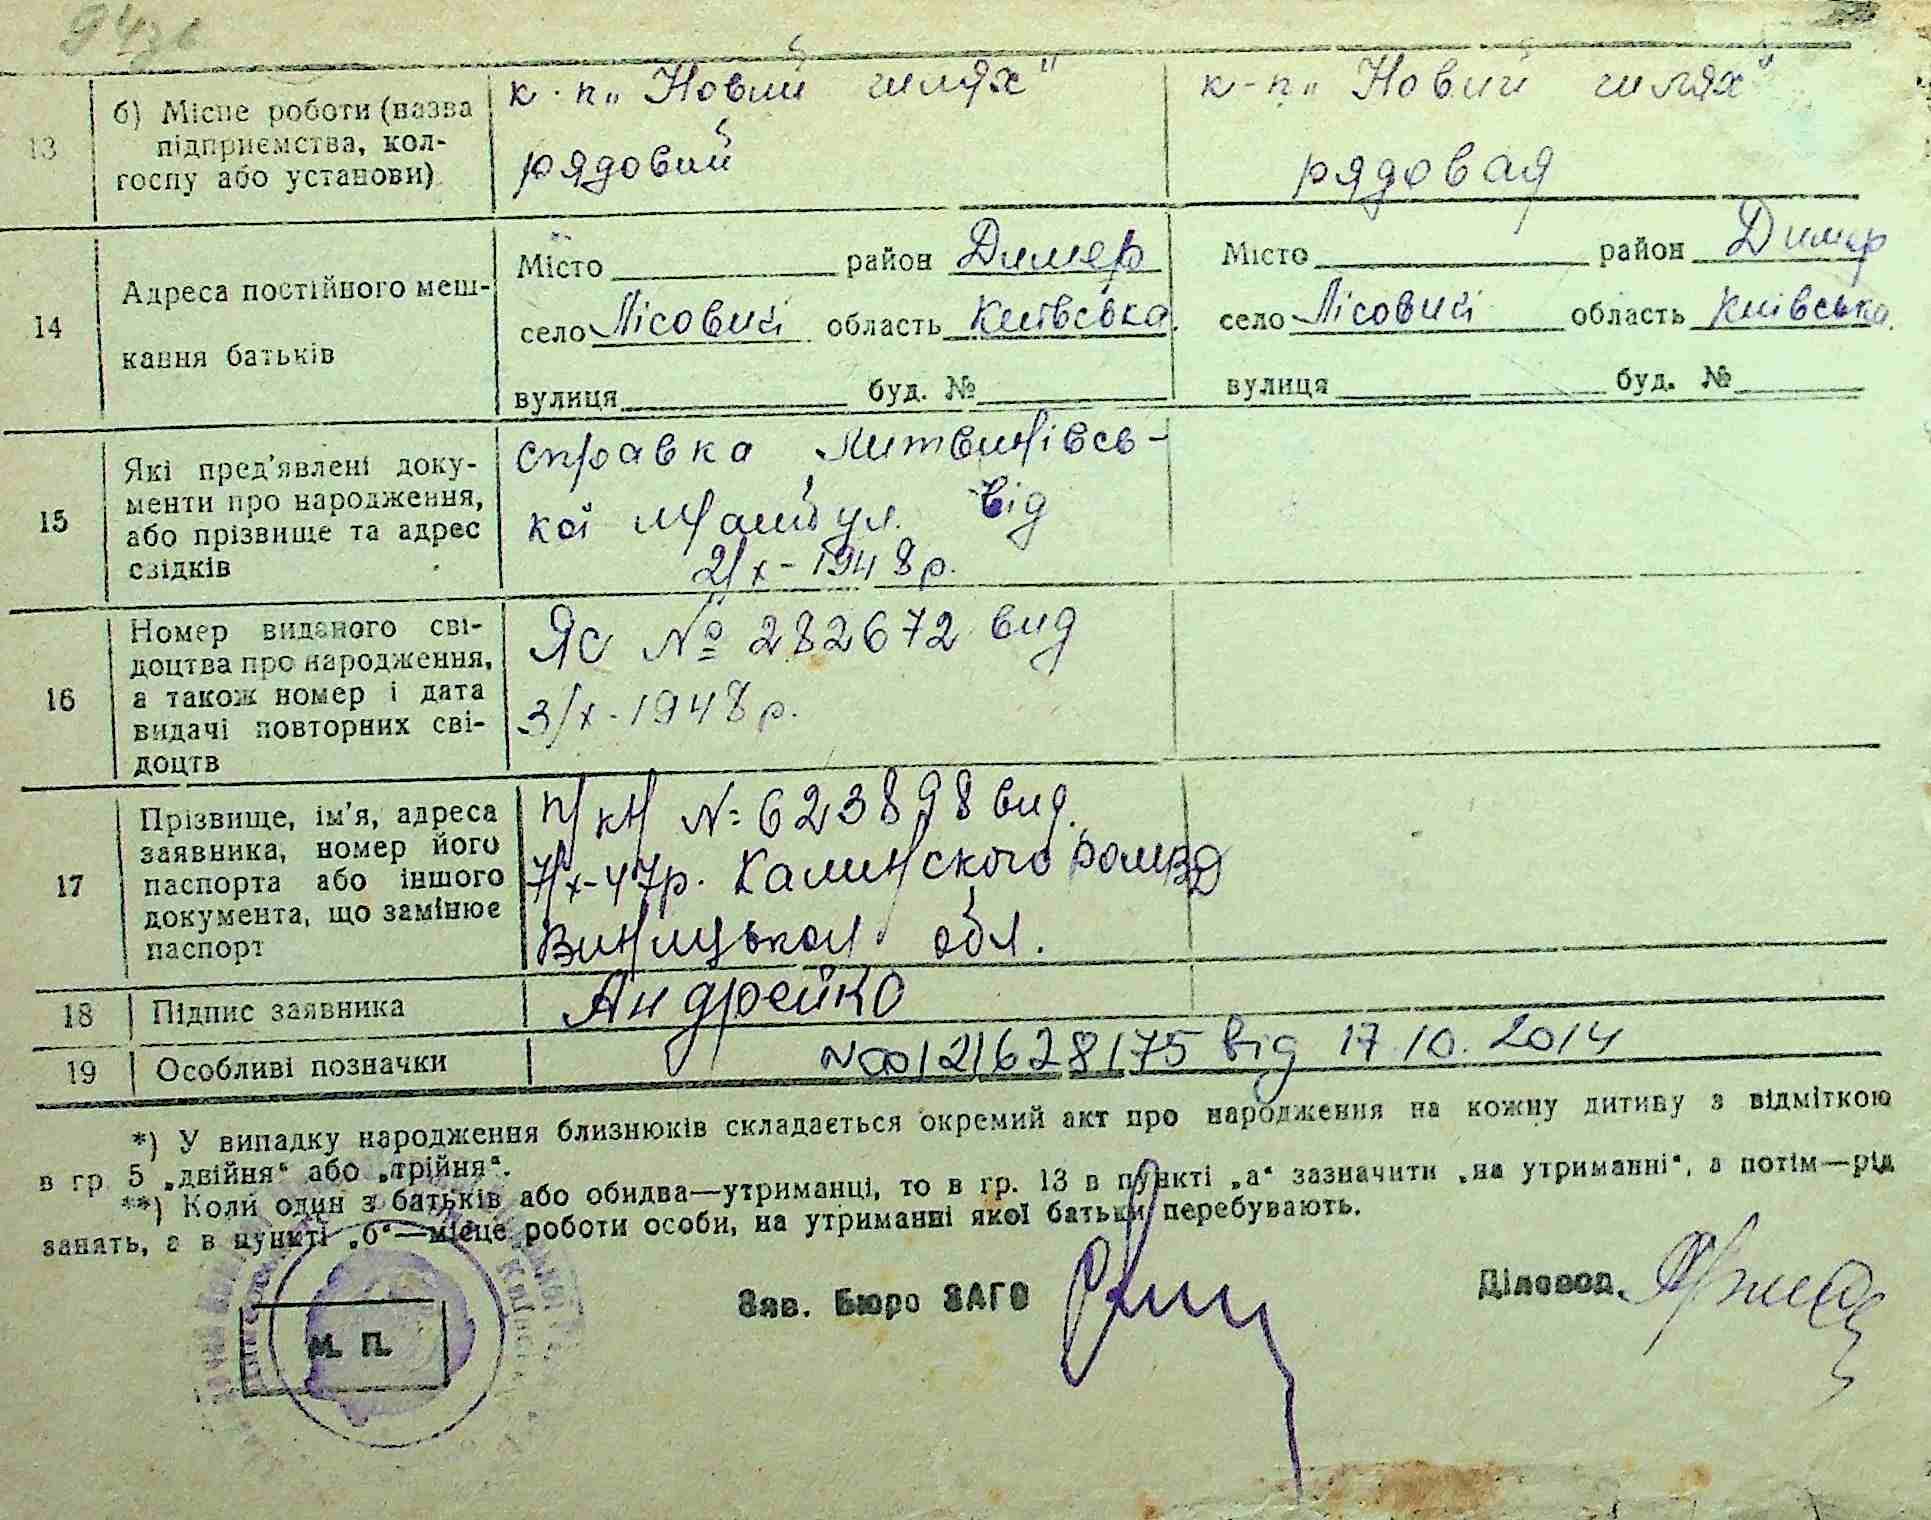 13
б) Місце роботи (назва
підприємства, кол-
госпу або установи)
к-п „Новий шлях"
рядовий
к-п „Новий шлях"
рядовая
14
Адреса постійного меш-
кання батьків
Місто район Димер
село Лісовий область Київська.
вулиця буд. №
Місто район Димер
село Лісовий область Київська.
вулиця буд. №
15
Які пред'явлені доку-
менти про народження,
або прізвище та адрес
свідків
справка Литвинівсь-
кої від
2/х-1948р.
16
Номер виданого сві-
доцтва про народження,
а також номер і дата
видачі повторних сві-
доцтв
ЯС № 282672 вид
3/х-1948р.
17
Прізвище, ім'я, адреса
заявника, номер його
паспорта або іншого
документа, що замінює
паспорт
№ 623898 вид.
7/х-47р. Калинского
обл.
18
Підпис заявника
Андрейко
19
Особливі позначки
N00121628175 від 17.10.2014
*) У випадку народження близнюків складається окремий акт про народження на кожну дитину з відміткою
в гр 5 „двійня“ або „трійня“.
**) Коли один з батьків або обидва—утриманці, то в гр. 13 в пункті „а“ зазначити „на утриманні“, а потім—рід
занять, а в пункті „б“—місце роботи особи, на утриманні якої батьки перебувають.
М. П.
Зав. Бюро ЗАГС
Діловод